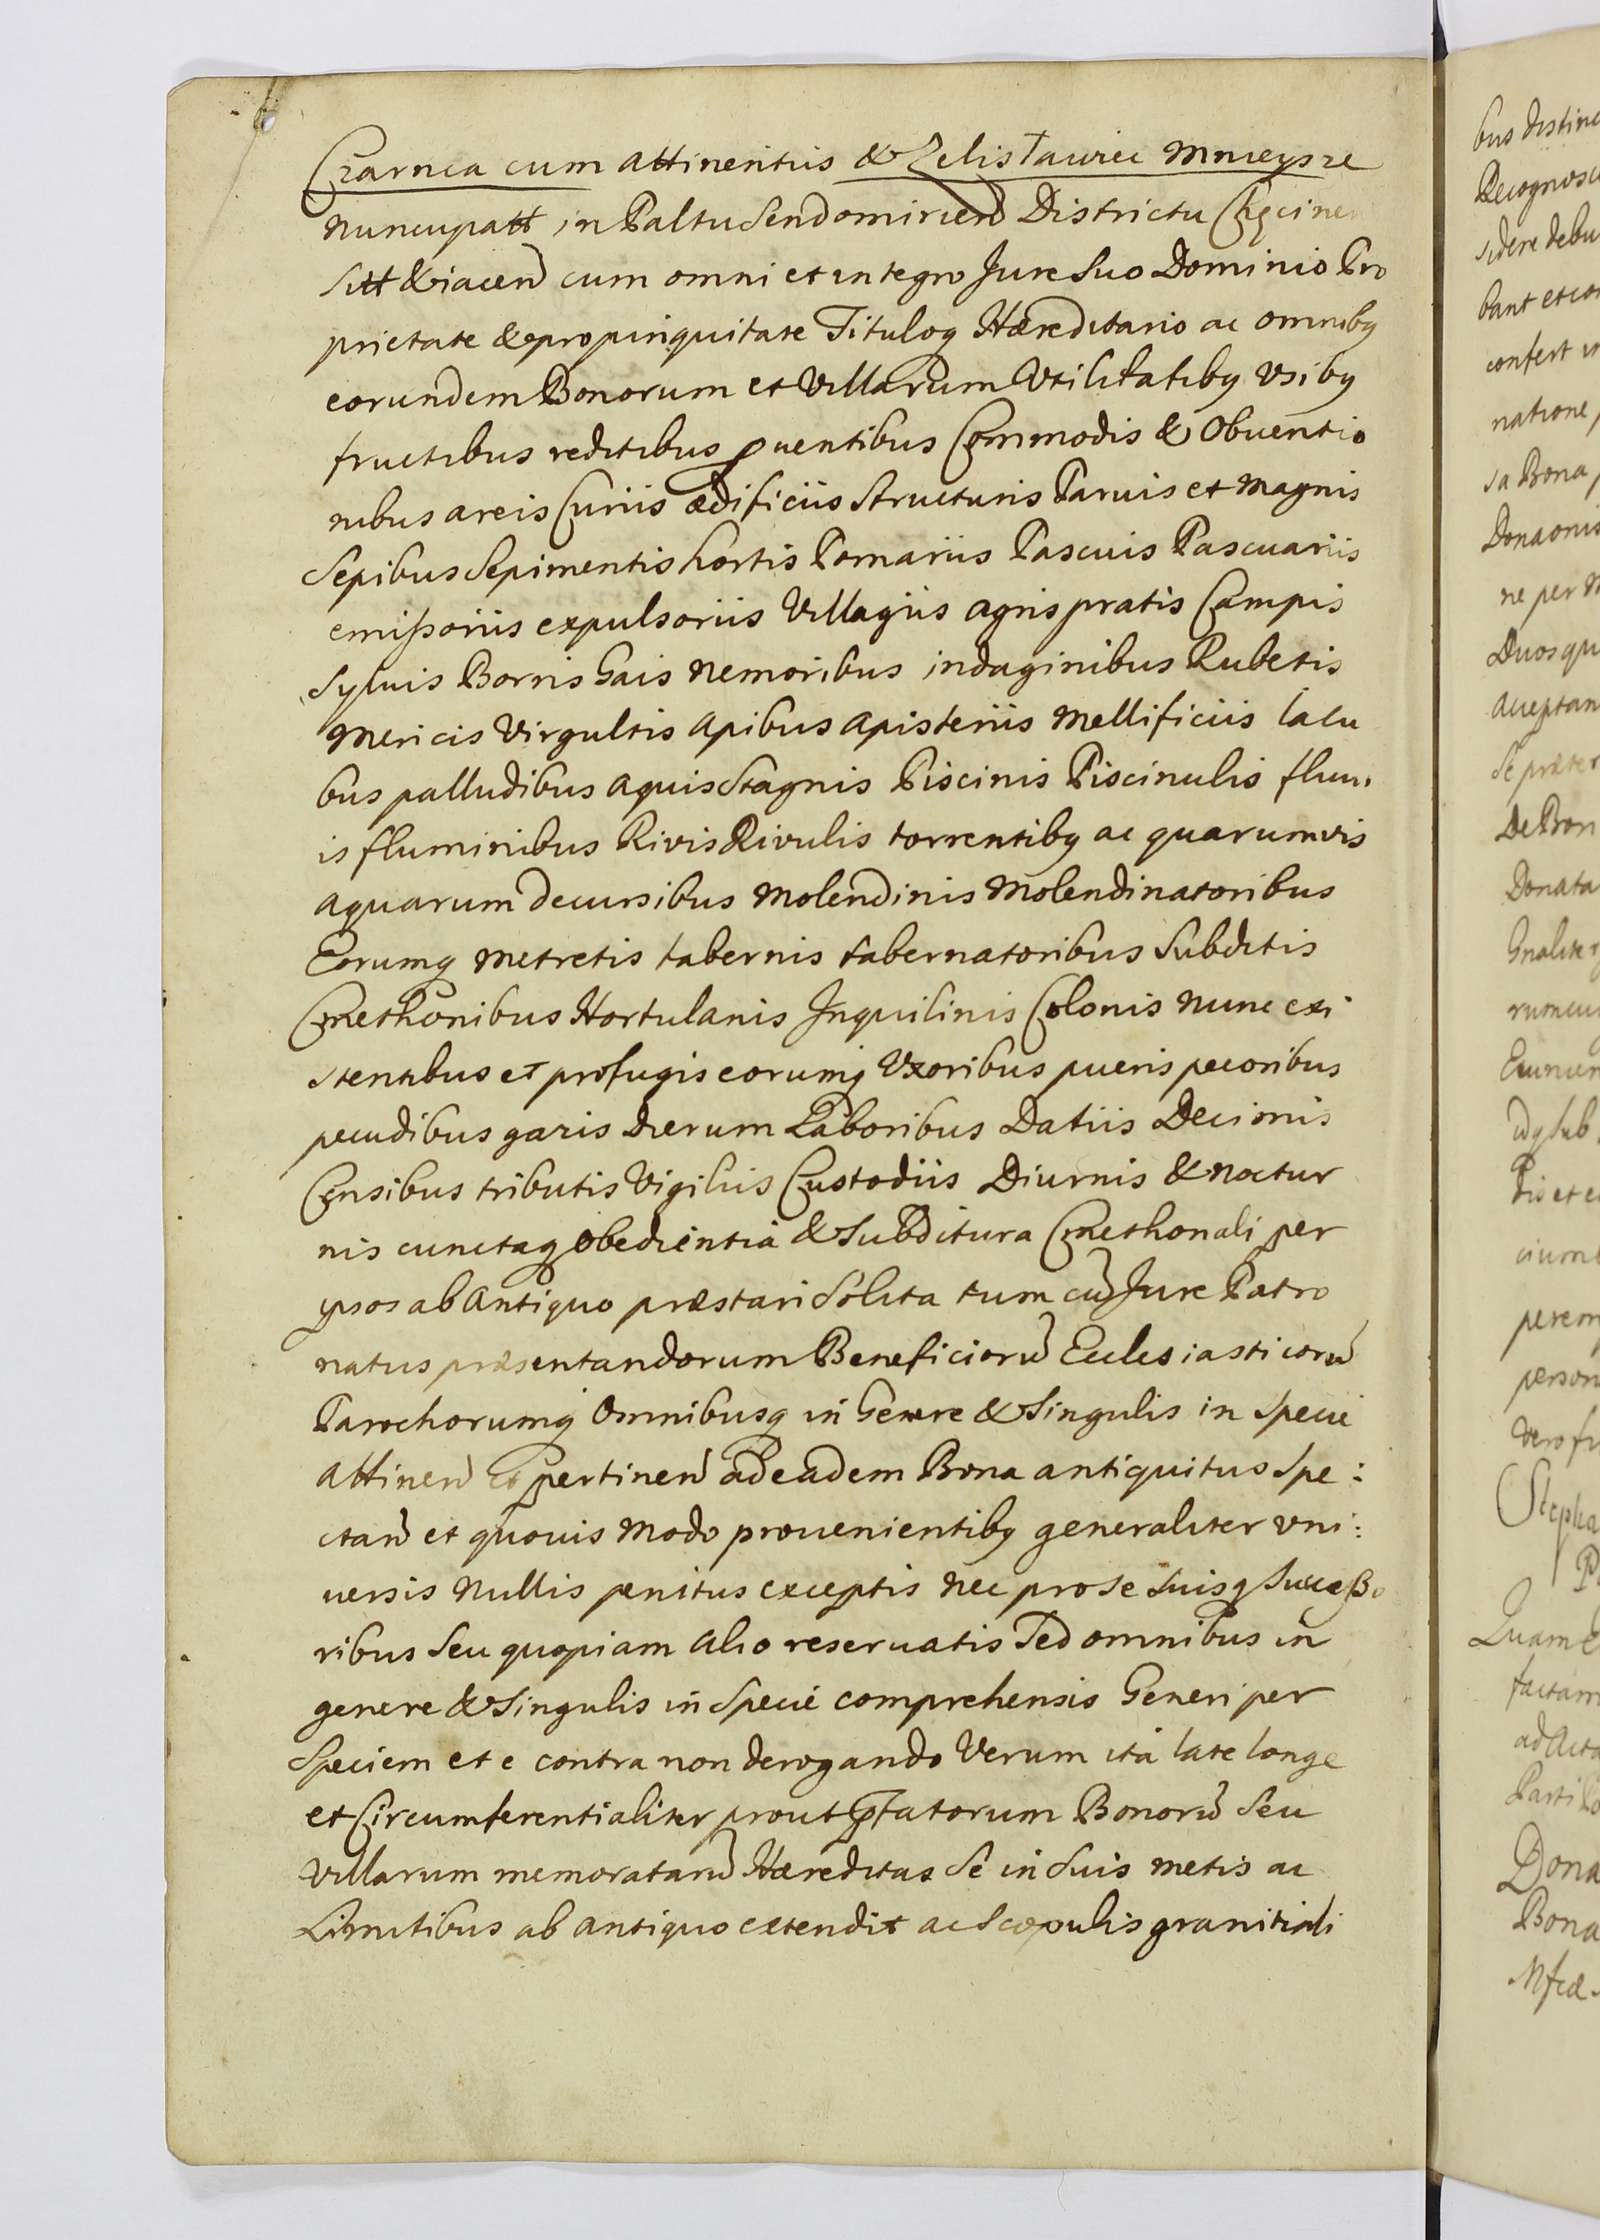 Czarnca cum attinentiis & Zelistawiec Mnieysze
nuncupatt in Paltu Sendomirien Districtu Chęcinen
sitt & iacen cum omni et integro Jure Suo Dominio Pro
prietate & propinquitate Tituloq Hæreditario ac omnibq
eorundem Bonorum et Villarum Utilitatibq Usibq
fructibus reditibus puentibus Commodis & Obuentio
nibus areis Curiis ædificiis Structuris Paruis et Magnis
Sepibus Sepimentis hortis Pomariis Pascuis Pascuariis
emißoriis expulsoriis Villagiis agris pratis Campis
Syluis Borris Gais Nemoribus indaginibus Rubetis
Mericis Virgultis Apibus Apisteriis Mellificiis lacu
bus palludibus aquis Stagnis Piscinis Piscinulis fluu
is fluminibus Rivis Rivulis torrentibq ac quarumvis
aquarum decursibus Molendinis Molendinatoribus
Eorumq Metretis tabernis tabernatoribus Subditis
Cmethonibus Hortulanis Inquilinis Colonis nunc exi
stentibus et profugis eorumq Uxoribus pueris pecoribus
pecudibus gazis Dierum Laboribus Datiis Decimis
Censibus tributis Vigiliis Custodiis Diurnis & noctur
nis cunctaq obedientia & subditura Cmethonali per
ipsos ab Antiquo præstari Solita tum cu Jure Patro
natus præsentandorum Beneficioru Ecclesiasticoru
Parochorumq Omnibusq in Genere & Singulis in Specie
attinen et pertinen ad eadem Bona antiquitus Spe:
ctan et quouis Modo prouenientibq generaliter vni:
uersis Nullis penitus exceptis nec pro Se Suisq Succeßo
ribus Seu quopiam Alio reseruatis Sed omnibus in
genere & Singulis in Specie comprehensis Generi per
Speciem et e contra non derogando Verum ita late longe
et Circumferentialiter prout pfatorum Bonoru Seu
Villarum memorataru Hæreditas Se in Suis metis ac
Limitibus ab antiquo extendit ac Scopulis granitiali
bus distinc
Recognosc
sidere debu
bant et con
confert i
natione
sa Bona
Donaonis
ne per
Duos qu
acceptan
Se præter
De Bon
Donata
Gnaliter
rumcu
Euincen
Pis et e
perem
person
vero fu
Stepha
Quam
factam
ad Acta
Parti
Dona
Bona